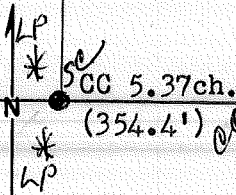 LP
SC
CC 5.37ch.
N
(354.4')
LP